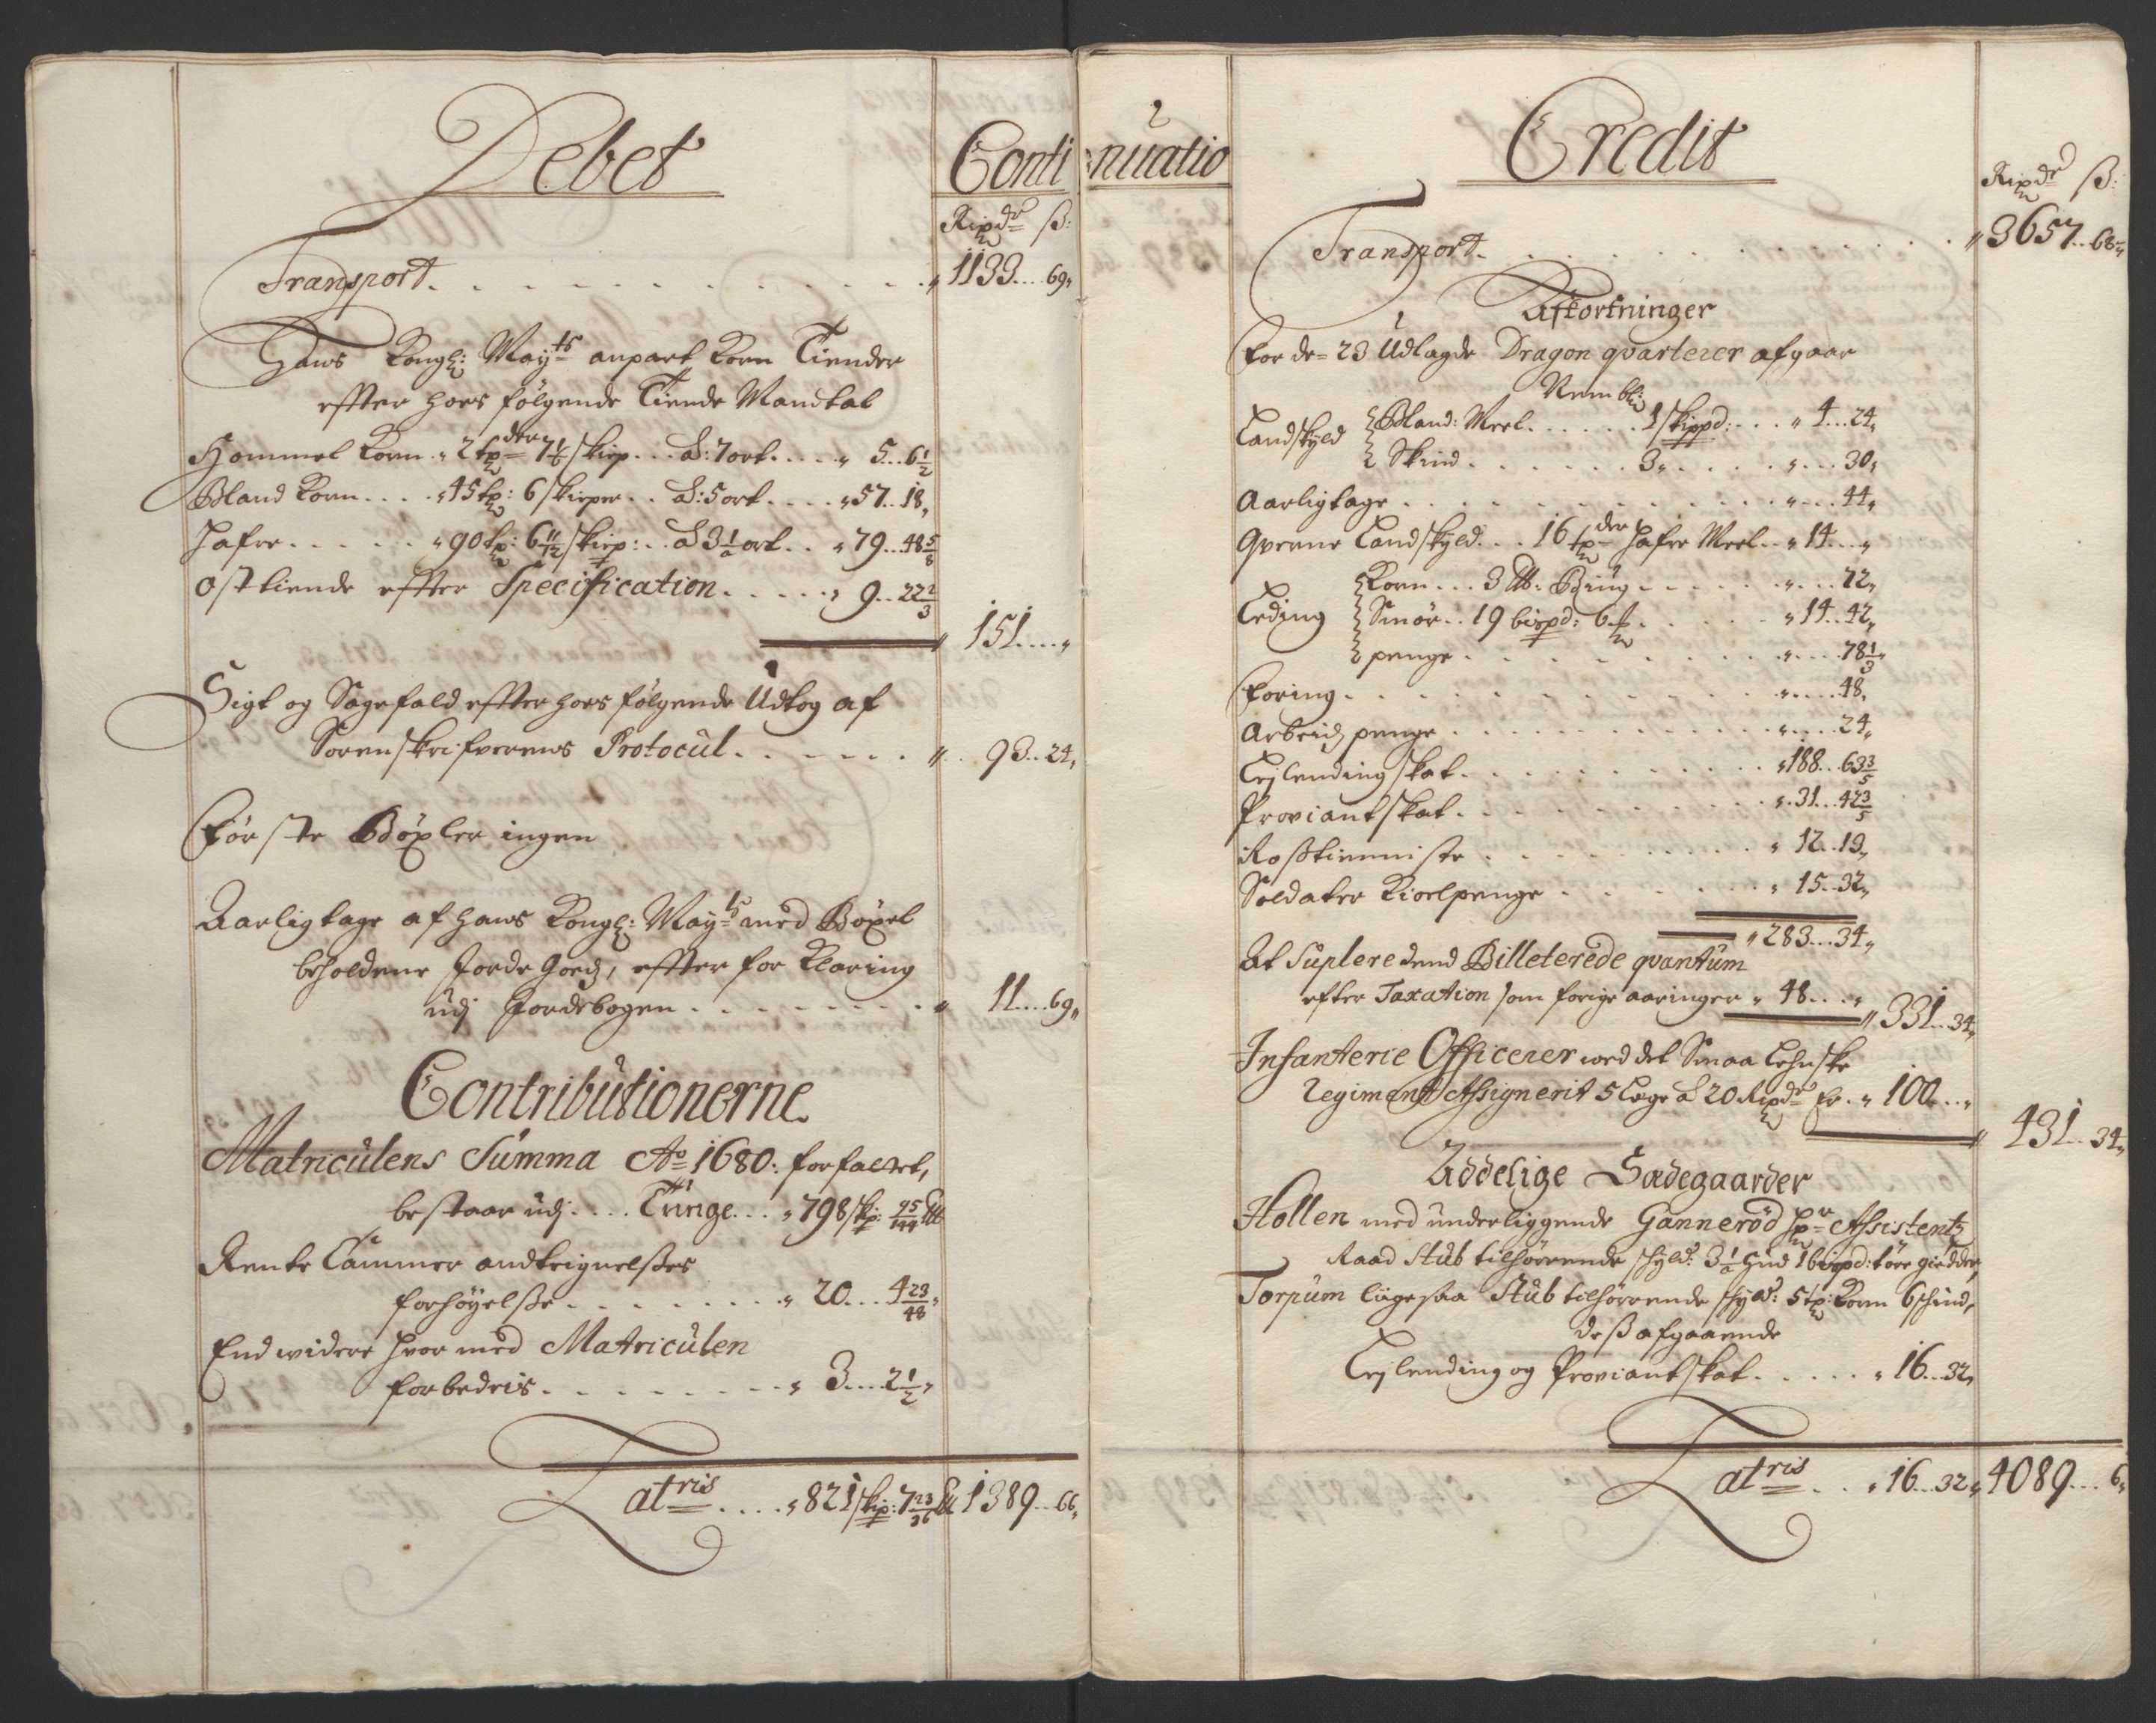 Debet
Conti
Rixdr ß:
Transport. . . . . . . . . . . . . " 1133... 69"
Hans Kongl: Mayts anpart Korn Tiender
effter hoes følgende Tiende Mandtal
Hommel Korn " 2 tpder 7 1/6 skiep... à: 7 ort. . . . . " 5... 6 1/2
Bland Korn. . . . " 45 tp: 6 skieper.. à: 5 ort. . . . " 57.. 18"
Hafre. . . . . . " 90 tp: 6 11/12 skiep:.. à 3 1/2 ort. . " 79.. 48 5/8
Ostetiende effter Specification. . . . . " 9.. 22 2/3
" 151.... "
Sigt og Sagefald effter hoes følgende Udtog af
Sorenskrifverens Protocul. . . . . . . " . 93.. 24"
Første Böxler ingen
Aarligtage af Hans Kongl: Mayts med Böxel
beholdene Jorde Goeds, effter forklaring
udj Jordebogen. . . . . . . . . " 11.... 69"
Contributionerne
Matriculens Summa Ao 1680: forfattet,
bestaar udj.... Tunge... " 798 skp: 95/144 lb
Rente Cammer andteignelsses
forhøyelsse. . . . . . . . . " 20... 4 23/48 "
End widere hvor med Matriculen
forbedris. . . . . . . . . " 3.... 2 1/2 "
Latris. . . . . " 821 skip: 7 23/36 lb 1389... 66"
2
nuatio
Credit
Rixdr ß:
Transport. . . . . . . . . . . . . " 3657.. 68"
Afkortninger
For de 23 Udlagde Dragon qvarterer afgaar
Nembl:
Landskyld { Bland: Meel. . . . . . 1 skippd:. . . " 4... 24"
{ Skind. . . . . . . 3". . . . . "... 30"
Aarligtage. . . . . . . . . . . . . . . . "... 44"
Qverne Landskyld. . . 16 tpder Hafre Meel.. " 14.... "
Leding { Korn... 3 lb. Biug. . . . . . "... 72"
{ Smør.. 19 bispd: 6 . . . . . " 14.. 42"
{ penge. . . . . . . . . . . . ".... 78 1/3 "
Foring. . . . . . . . . . . . . . . ".... 48"
Arbeids penge. . . . . . . . . . . . ".... 24"
Lejlending skat. . . . . . . . . . . " 188.. 63 3/5
Proviantskat. . . . . . . . . . . . ". 31... 42 3/5
Roßtienniste. . . . . . . . . . . . " 12.. 19"
Soldater Kioelpenge. . . . . . . . " 15.. 32"
" 283... 34"
At Suplere dend Billeterede qvantum
efter Taxation som forige aaringer " 48.... "
" 331.. 34"
Infanterie Officerer wed det Smaa Lehnske
Regiment Assignerit 5 Læge à 20 Rixdr er. " 100... "
" 431.. 34"
Addelige Sædegaarder
Hollen med underliggende Gannerød Hr Assistentz
Raad Stub tilhørrende skyld: 3 1/2 Hud 1 bispd: tøre giedder,
Torpum ligesaa Stub tilhørrende skyld: 5 tp: Korn 6 skind,
deß afgaaende
Lejlending og Proviantskat. . . . . " 16... 32"
Latris. . . " 16... 32" 4089... 6"